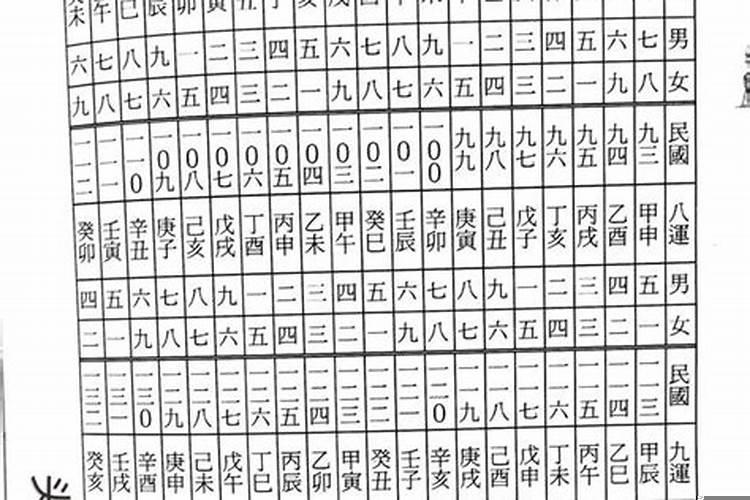 卯 辰 巳 午 未
男 七 六 五 四 三 二 一 九 八 七 六 五 四 三 二 一 九 八 七 六
女 八 九 一 二 三 四 五 六 七 八 九 一 二 三 四 五 六 七 八 九
民國 九三 九四 九五 九六 九七 九八 九九 一00 一0一 一0二 一0三 一0四 一0五 一0六 一0七 一0八 一0九 一一0 一一一 一一二
八運 甲申 乙酉 丙戌 丁亥 戊子 己丑 庚寅 辛卯 壬辰 癸巳 甲午 乙未 丙申 丁酉 戊戌 己亥 庚子 辛丑 壬寅 癸卯
男 五 四 三 二 一 九 八 七 六 五 四 三 二 一 九 八 七 六 五 四
女 一 二 三 四 五 六 七 八 九 一 二 三 四 五 六 七 八 九 一 二
民國 一一三 一一四 一一五 一一六 一一七 一一八 一一九 一二0 一二一 一二二 一二三 一二四 一二五 一二六 一二七 一二八 一二九 一三0 一三一 一三二
九運 甲辰 乙巳 丙午 丁未 戊申 己酉 庚戌 辛亥 壬子 癸丑 甲寅 乙卯 丙辰 丁巳 戊午 己未 庚申 辛酉 壬戌 癸亥